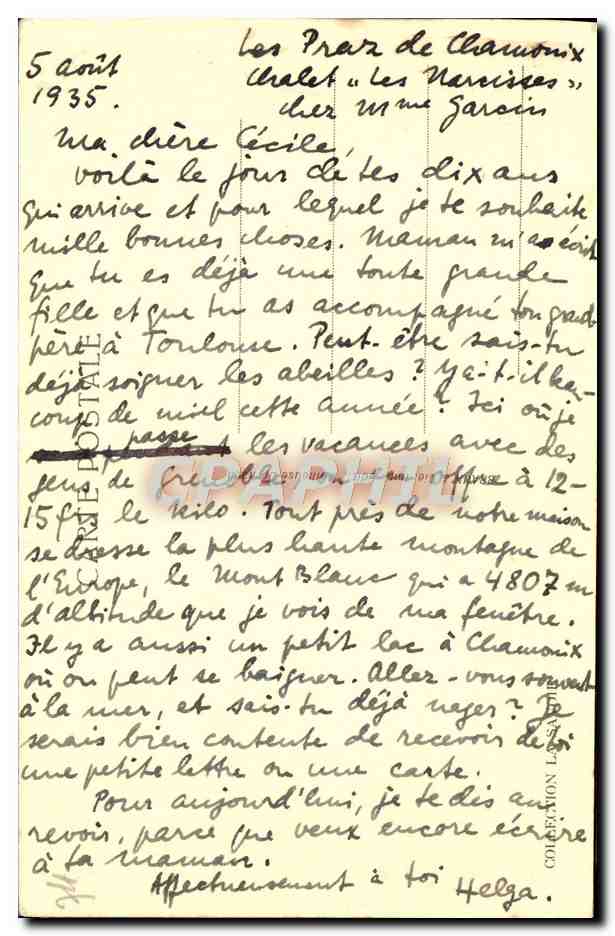 Les Praz de Chamonix
5 août
Chalet „Les Narcisses"
1935.
chez Mme Garcin
Ma chère Cécile,
voilà le jour de tes dix ans
qui arrive et pour lequel je te souhaite
mille bonnes choses. Maman m'a écrit
que tu es déjà une toute grande
fille et que tu as accompagné ton grand-
père à Toulouse. Peut-être sais-tu
déjà soigner les abeilles? Y a-t-il beau-
coup de miel cette année? Ici où je
passe les vacances avec des
gens de Grenoble on en offre à 12-
15 frs le kilo. Tout près de notre maison
se dresse la plus haute montagne de
l'Europe, le Mont Blanc qui a 4807 m
d'altitude que je vois de ma fenêtre.
Il y a aussi un petit lac à Chamonix
où on peut se baigner. Allez-vous souvent
à la mer, et sais-tu déjà nager? Je
serais bien contente de recevoir de toi
une petite lettre ou une carte.
Pour aujourd'hui, je te dis au
revoir, parce que veux encore écrire
à ta maman.
Affectueusement à toi
Helga.
CARTE POSTALE
COLLECTION LA SARDE
CPAPHIL